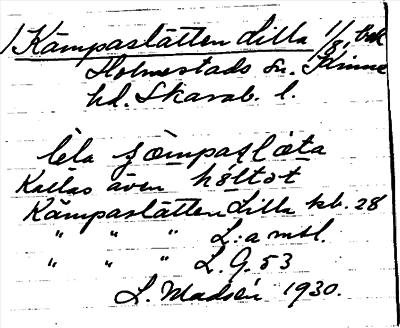 1) Kämpaslätten Lilla 1/8  Bek
Holmestads sn. Kinne
hd. Skarab. l.
lḕla ʒœmpaslœta
Kallas även hòltət
Kämpaslätten Lilla kb. 28
" " " L:a msl.
" " " L. G. 53
L. Madsén 1930.